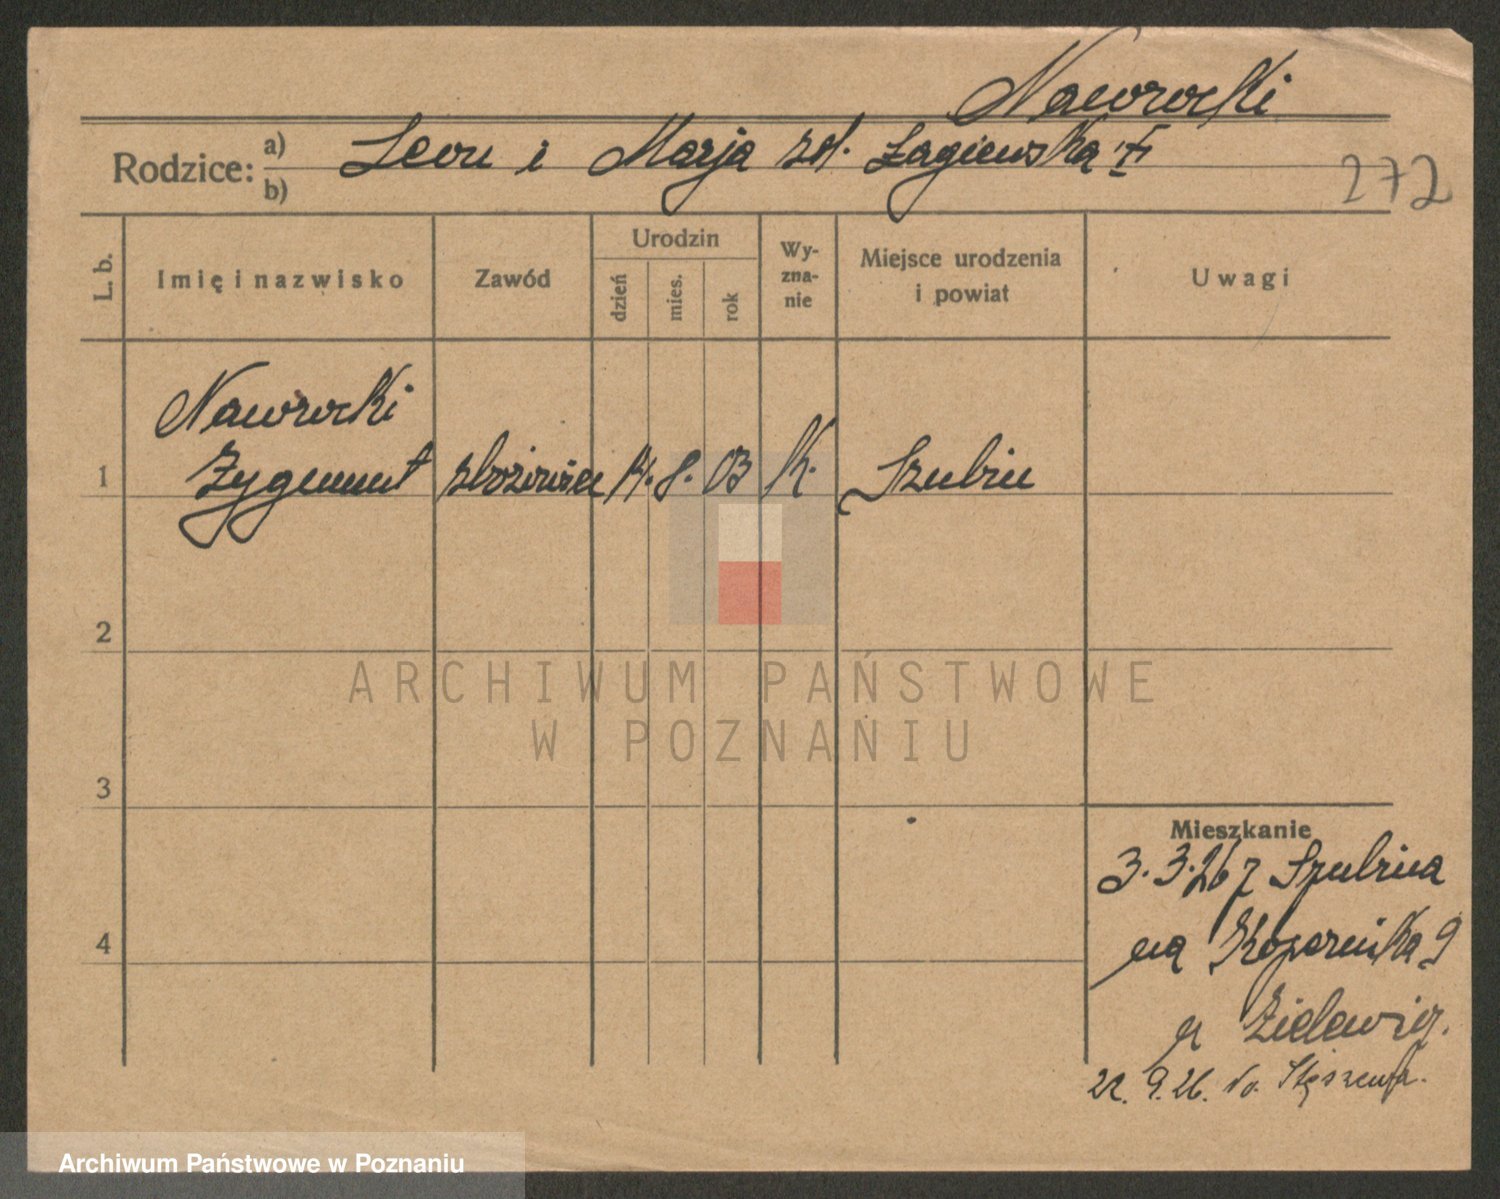 Nawrocki
Rodzice: a) b) Leon i Marja zd. Łagiewska
272
L. b.
Imię i nazwisko
Zawód
Urodzin
dzień
mies.
rok
Wy-
zna-
nie
Miejsce urodzenia
i powiat
Uwagi
Nawrocki
1 Zygmunt 14. 8. 03 K. Szubin
2
3
4
Mieszkanie
3.3.26 z Szubina
na Kopernika 9
u Zielewicz.
22. 9. 26. do Stęszewa.
ARCHIWUM PAŃSTWOWE
W POZNANIU
Archiwum Państwowe w Poznaniu